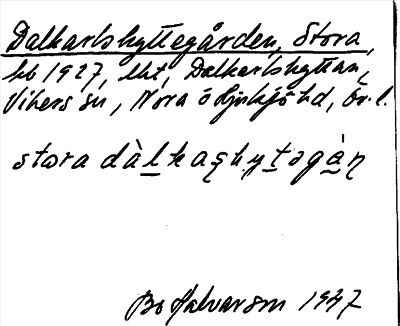 Dalkarlshyttegården, Stora,
hb 1927, lht, Dalkarlshyttan,
Vikers sn, Nora o Hjulsjö hd, Ör. l.
stora dàl̲kaʂhyt̲əgá̲ɳ
Bo Halvarson 1947